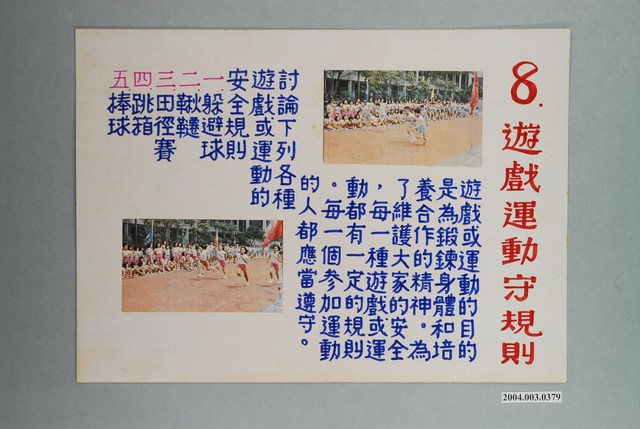 8.遊戲運動守規則
遊戲或運動的目的
是為鍛鍊身體和培
養合作的精神。為
了維護大家的安全
，每一種遊戲或運
動都有一定的規則
。每一個參加運動
的人都應當遵守。
討論下列各種
遊戲或運動的
安全規則
一.躲避球
二.鞦韆
三.田徑賽
四.跳箱
五.棒球
2004.003.0379